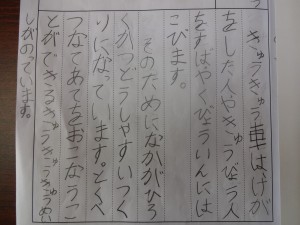 きゅうきゅう車は、けが
をした人やきゅうびょう人
をすばやくびょういんには
こびます。
そのために、なかがひろ
くかつどうしやすいつく
りになっています。とくべ
つなてあてをおこなうこ
とができるきゅうきゅうきゅうめい
しがのっています。